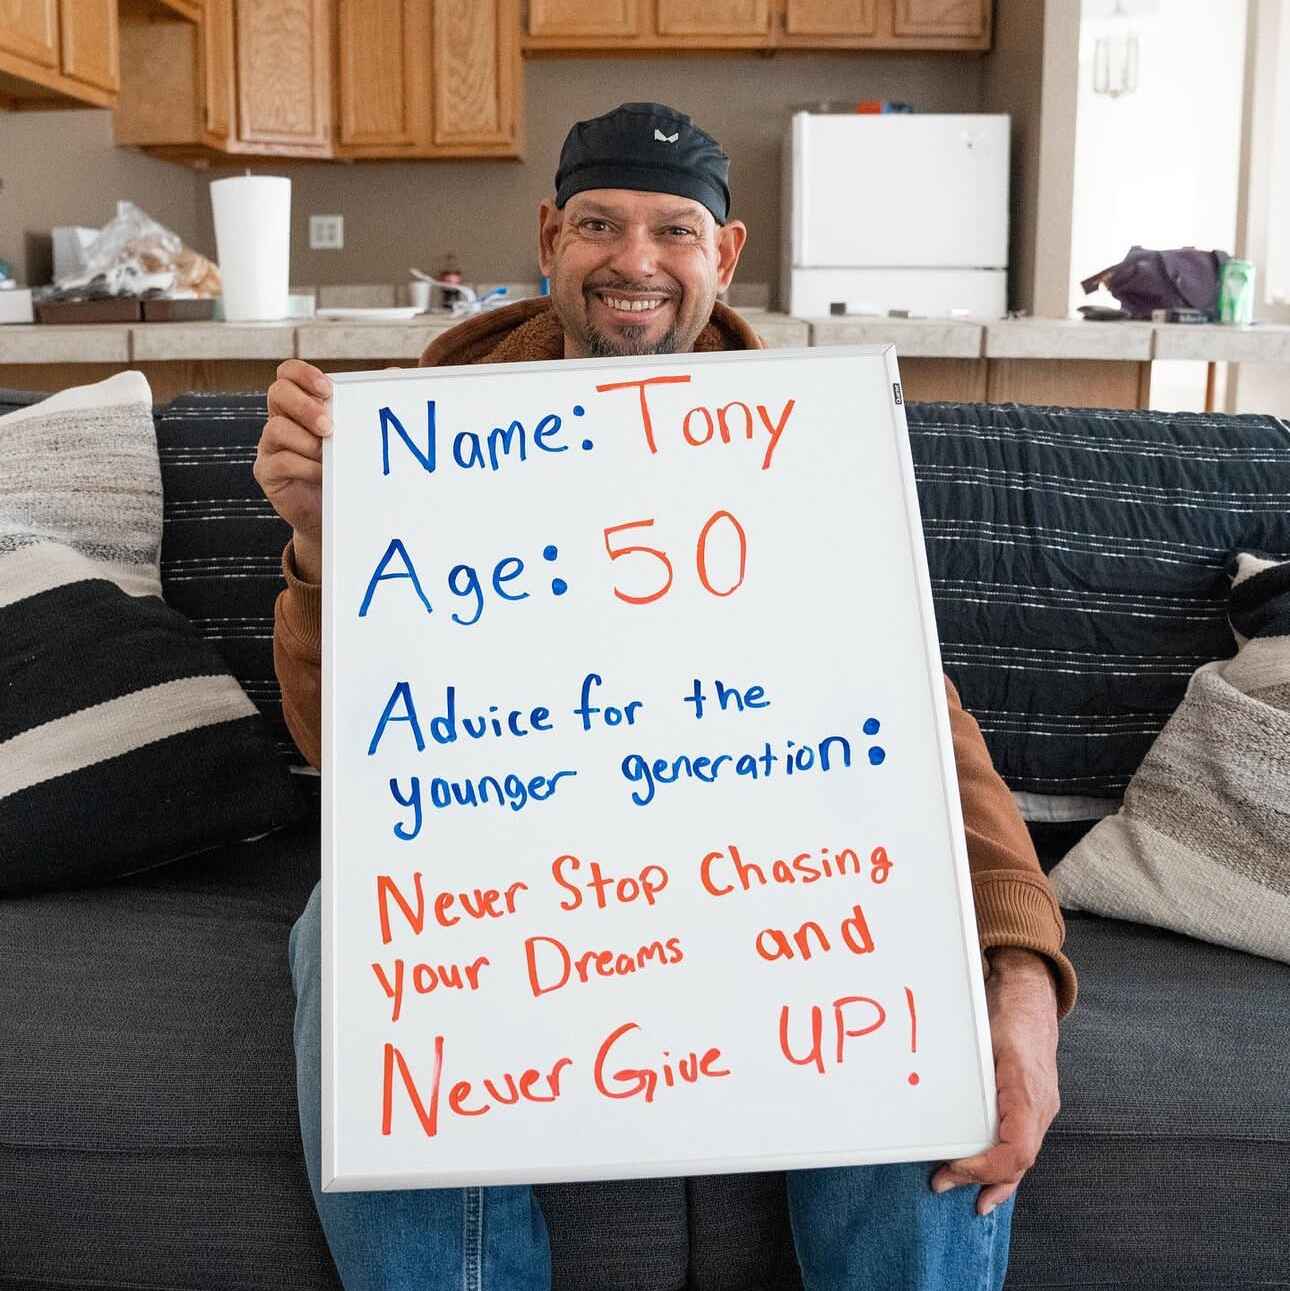 Name: Tony
Age: 50
Advice for the
younger generation:
Never Stop Chasing
your Dreams and
Never Give UP!